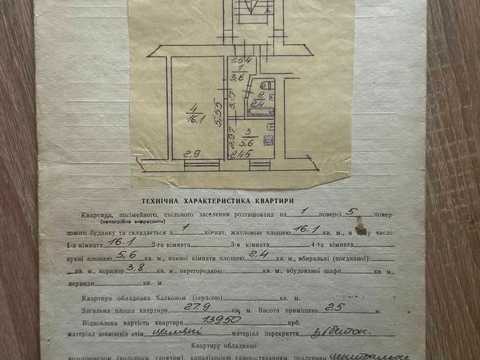 2.54
1
3.6
2
2.4
4
16.1
5.55
3.17
2.97
3
5.6
2.9
2.45
ТЕХНІЧНА ХАРАКТЕРИСТИКА КВАРТИРИ
Квартира, посімейного, спільного заселення розташована на 1 поверсі 5 повер
хового будинку та складається з 1 кімнат, житловою площею 16.1 кв. м, в тому числі
1-а кімната 16.1 2-га кімната кв. м, 3-я кімната кв. м, 4-та кімната кв. м,
кухні площею 5.6 кв. м, ванної кімнати площею 2.4 кв. м, вбиральні (поєднаної)
кв. м, коридор 3.8 кв. м, перегородкою кв. м, вбудованої шафи кв. м,
веранди кв. м.
Квартира обладнана балконом (лоджією) кв. м.
Загальна площа квартири 27.9 кв. м. Висота приміщень 2.5 м.
Відновлена вартість квартири 13950 крб.
матеріал зовнішніх стін матеріал перекриття з/бетон.
Квартиру обладнані